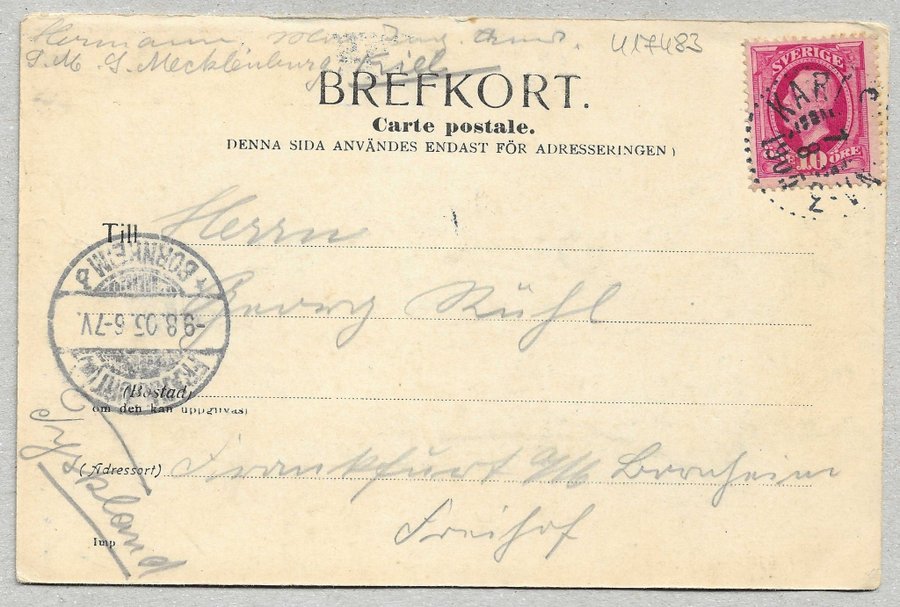 Hermann
S. M. S. Mecklenburg Kiel
417483
BREFKORT.
Carte postale.
DENNA SIDA ANVÄNDES ENDAST FÖR ADRESSERINGEN)
SVERIGE
10 ÖRE
KAR
Till Herrn
Georg Rühl
BORNHEIM
-9.8.05.6-7V.
FRANKFURT
(Bostad)
om den kan uppgifvas)
(Adressort) Frankfurt a/M Bornheim
Freihof
Tyskland
Imp